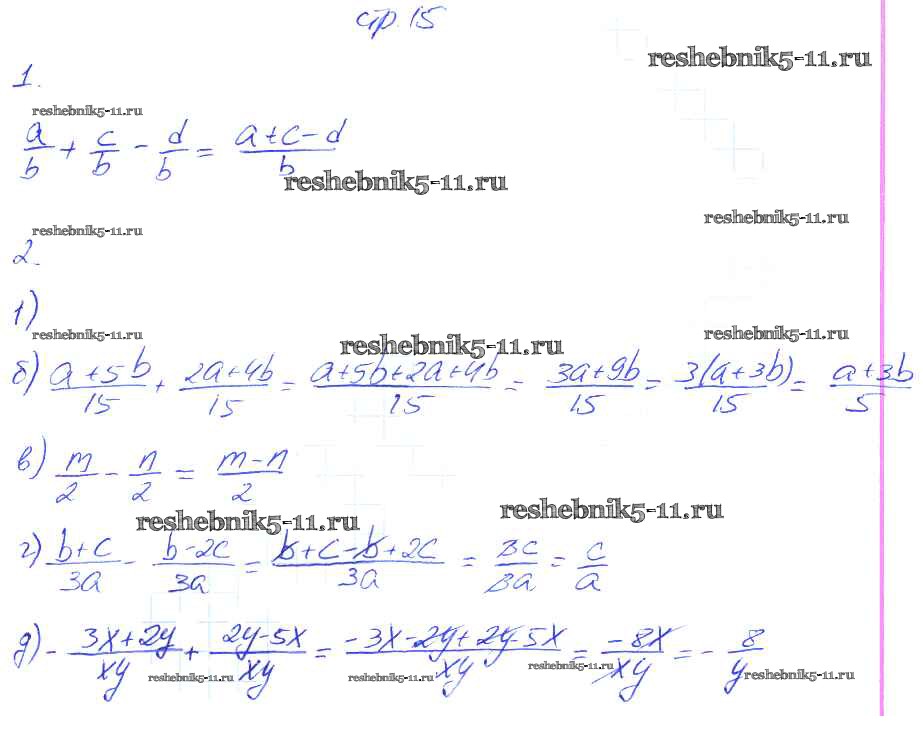 стр. 15
reshebnik5-11.ru
1.
reshebnik5-11.ru
a/b + c/b - d/b = (a+c-d)/b
reshebnik5-11.ru
reshebnik5-11.ru
reshebnik5-11.ru
2.
1)
reshebnik5-11.ru
reshebnik5-11.ru
reshebnik5-11.ru
б) (a+5b)/15 + (2a+4b)/15 = (a+5b+2a+4b)/15 = (3a+9b)/15 = 3(a+3b)/15 = (a+3b)/5
в) m/2 - n/2 = (m-n)/2
reshebnik5-11.ru
reshebnik5-11.ru
г) (b+c)/3a - (b-2c)/3a = (b+c-b+2c)/3a = 3c/3a = c/a
д) - (3x+2y)/xy + (2y-5x)/xy = (-3x-2y+2y-5x)/xy = -8x/xy = - 8/y
reshebnik5-11.ru
reshebnik5-11.ru
reshebnik5-11.ru
reshebnik5-11.ru